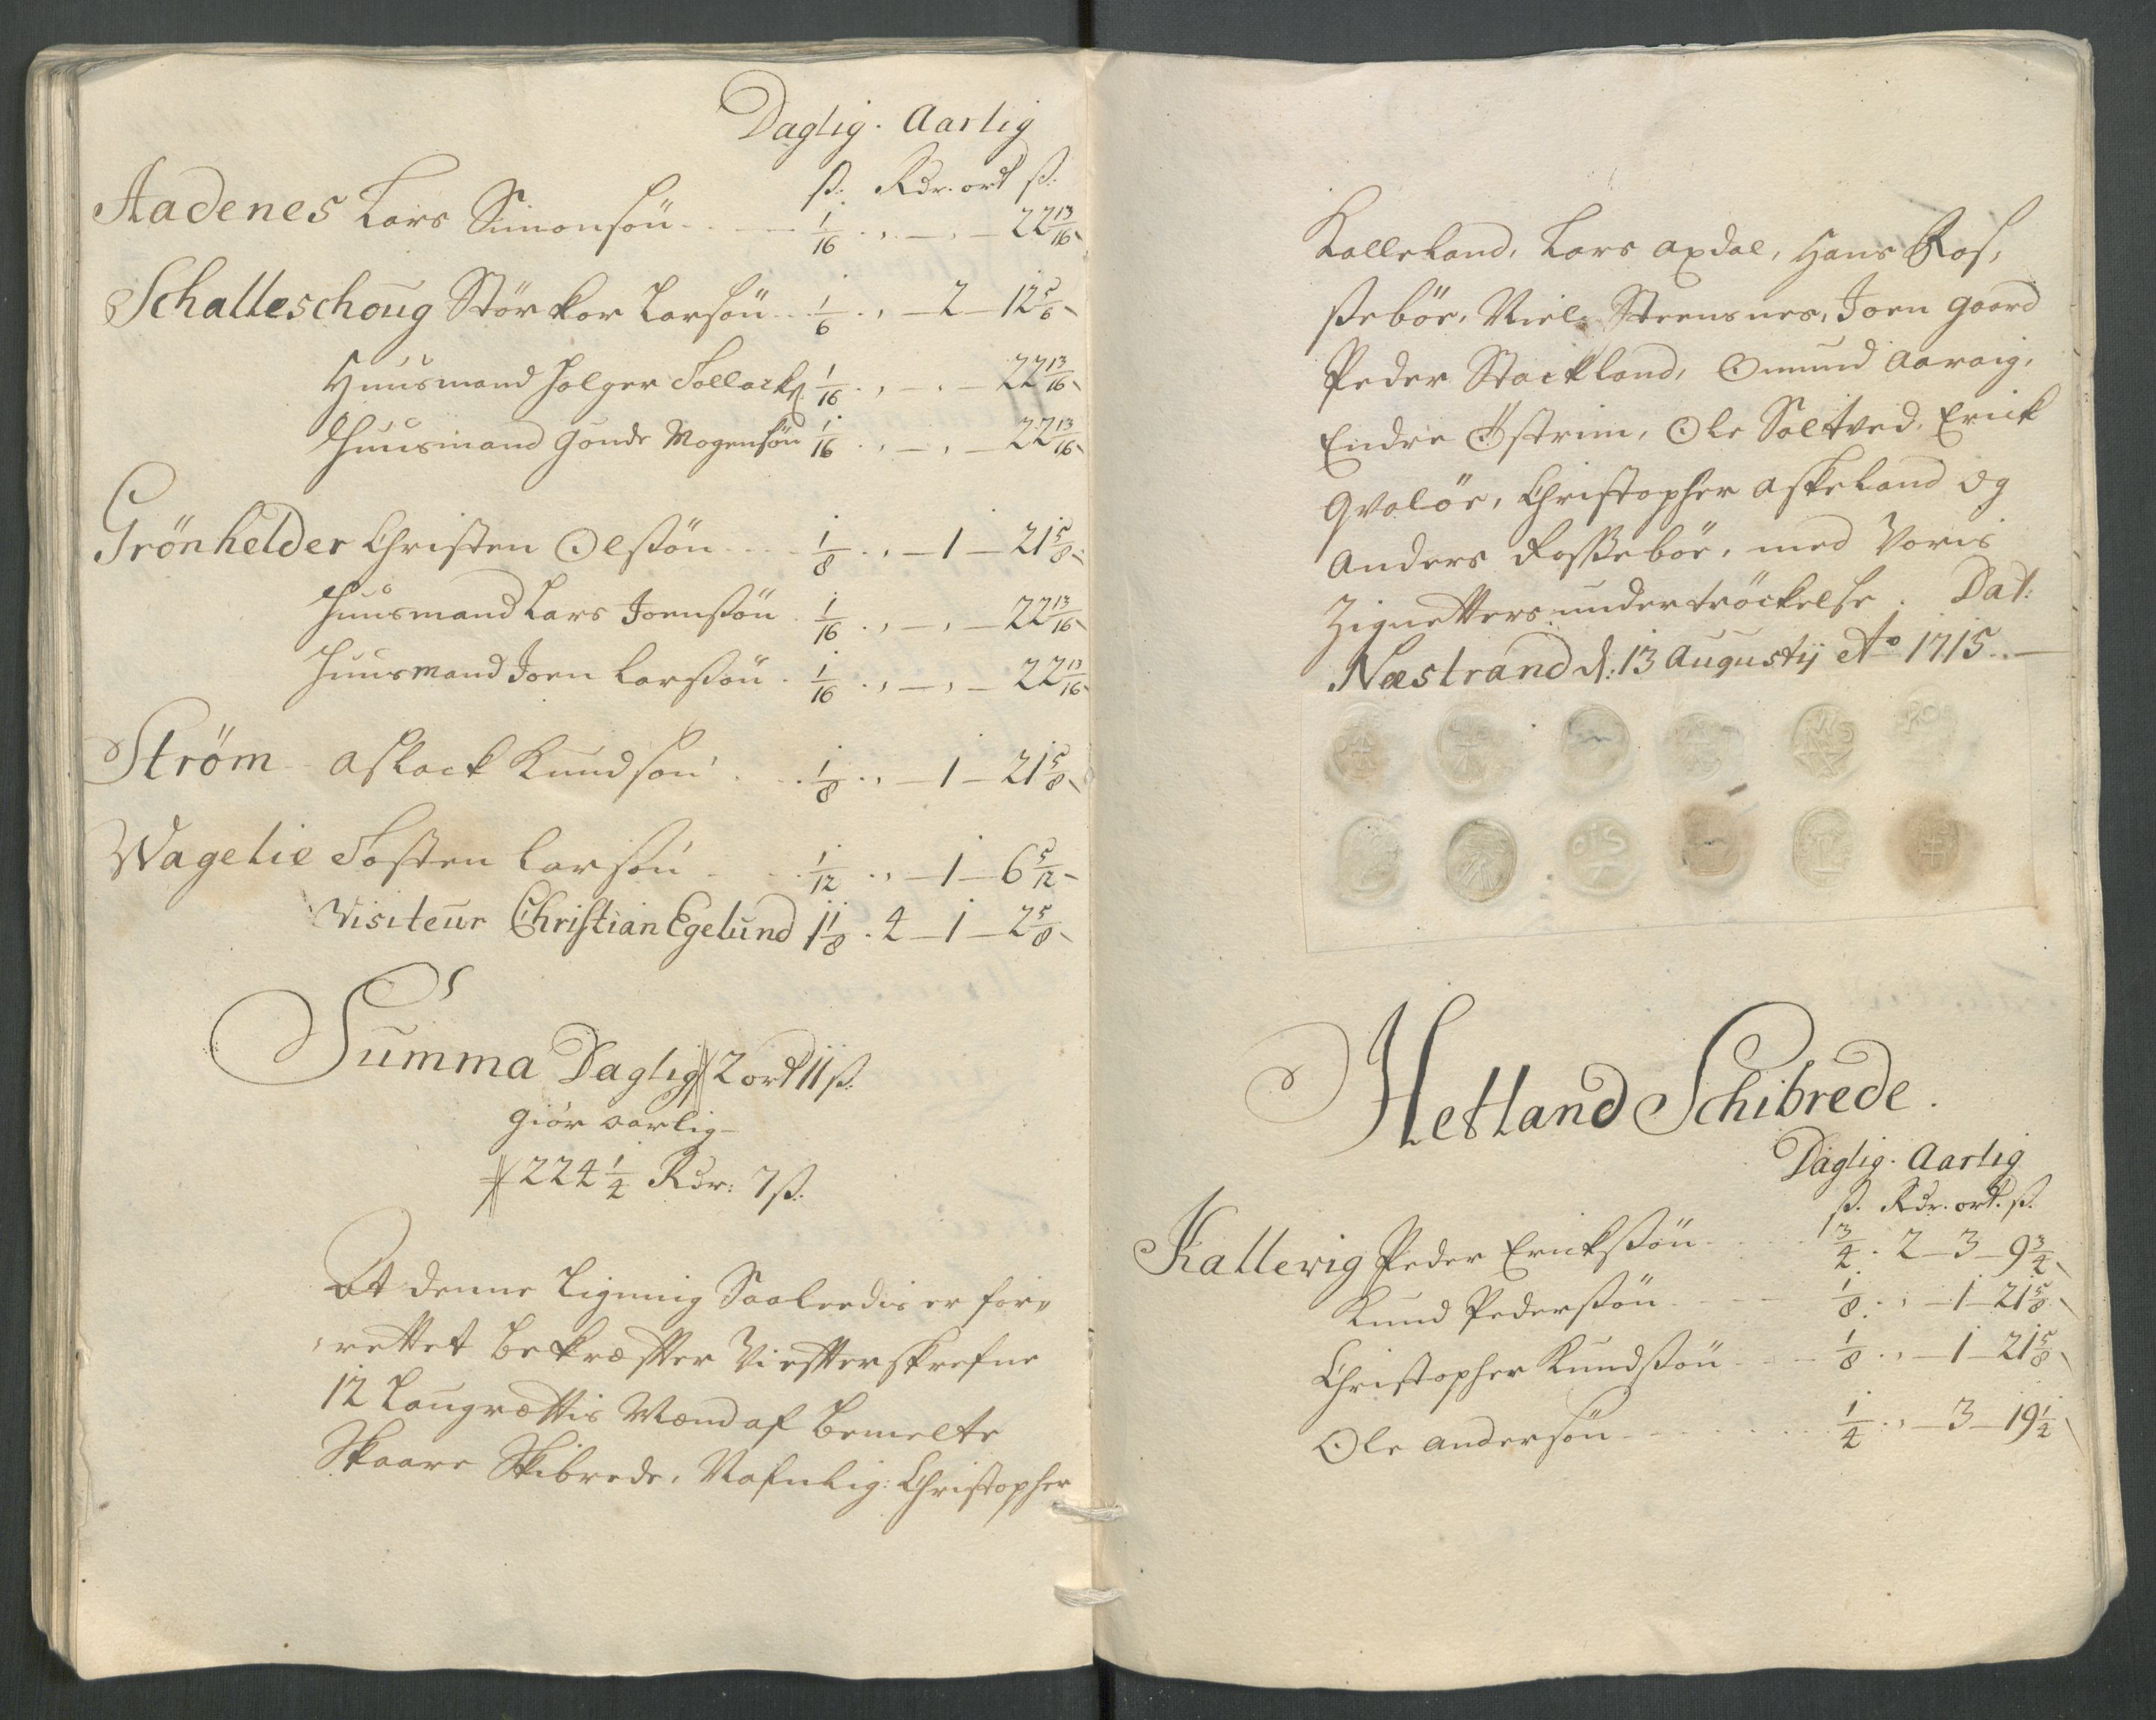 Daglig. Aarlig
ß: Rdr. ort ß:
Aadenes Lars Simonsøn 1/16 . , — , — 22 13/16
Schalleschoug Störkor Larsön 1/6 . , — 2 — 12 5/6
Huusmand Holger Sollack 1/16 . , — , — 22 13/16
Huusmand Gunde Mogensøn 1/16 . , — , — 22 13/16
Grönhelder Christen Olsøn 1/8 . , — 1 — 21 5/8
Huusmand Lars Joensøn 1/16 . , — , — 22 13/16
Huusmand Joen Larsøn 1/16 . , — , — 22 13/16
Strøm Aslack Knudsøn 1/8 . , — 1 — 21 5/8
Wagelie Tosten Larsøn 1/12 . , — 1 — 6 5/12
Visiteur Christian Egelund 1 1/8 . 4 — 1 — 2 5/8
Summa Daglig 2 ort 11 ß:
Giør aarlig
224 1/4 Rdr: 7 ß:
At denne Ligning Saaledis er for,,
,rettet bekræffter Vi effterskrefne
12 Laugrættis Mænd af bemelte
Skaare Skibrede, Nafnlig: Christopher
Kalleland, Lars Axdal, Hans Ros,
ßebör, Niels Steensnes, Joen Gaard
Peder Stackland, Omund Aaraig,
Endre Östrim, Ole Saltved, Erick
Qvalöe, Christopher Askeland og
Anders Rossebör, med Voris
Zignetters undertröckelse. Dat:
Næstrand d: 13 Augustij Ao 1715.
Hetland Schibrede.
Daglig. Aarlig
ß. Rdr. ort. ß.
Kallevig Peder Ericksøn 1 3/4 . 2 — 3 — 9 3/4
Knud Pedersøn 1/8 . , — 1 — 21 5/8
Christopher Knudsøn 1/8 . , — 1 — 21 5/8
Ole Andersøn 1/4 . , — 3 — 19 1/4